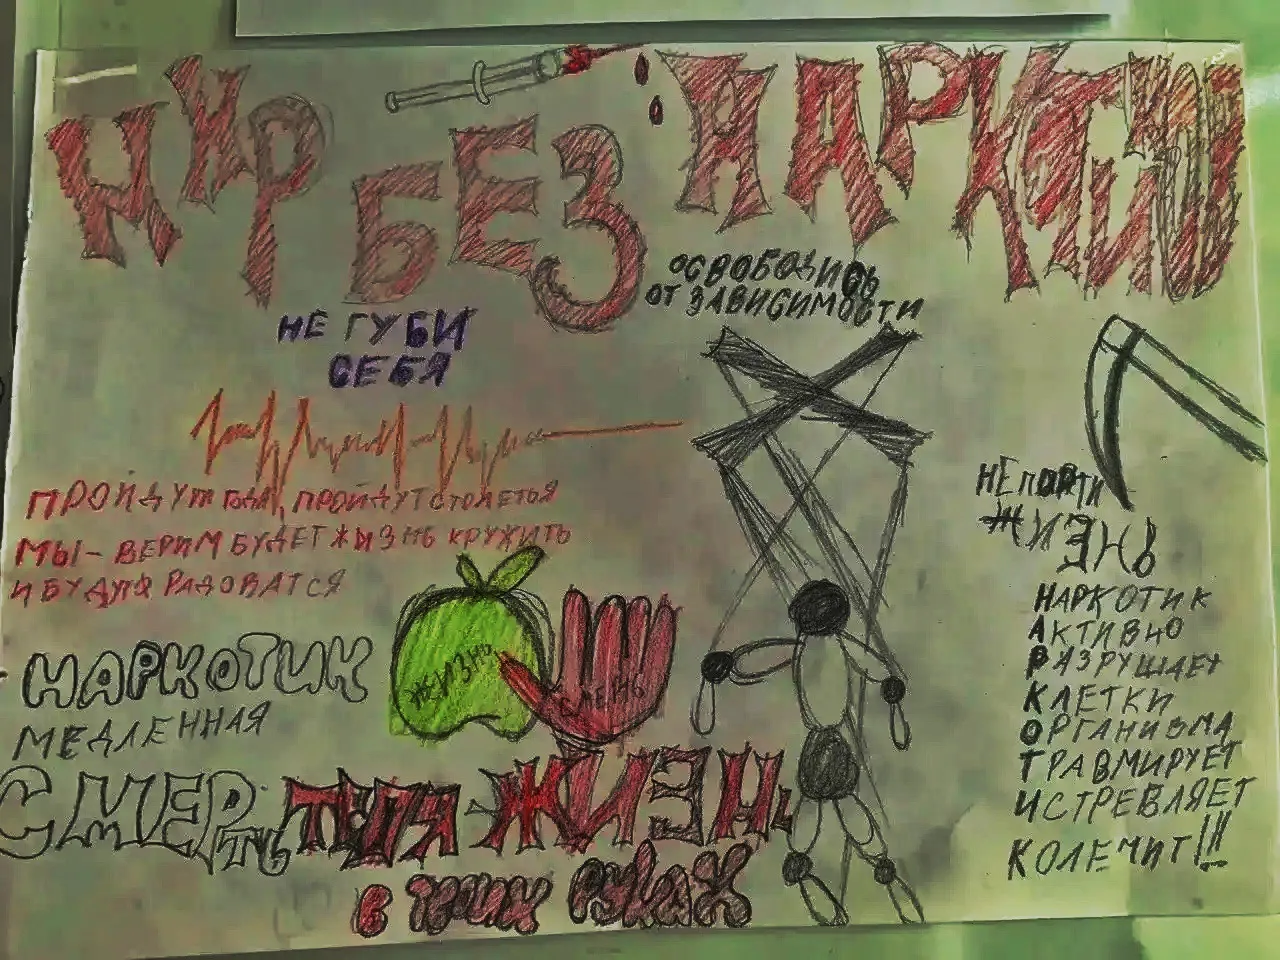 МИР БЕЗ НАРКОТИКОВ
ОСВОБОДИСЬ
ОТ ЗАВИСИМОСТИ
НЕ ГУБИ
СЕБЯ
ПРОЙДУТ ГОДА, ПРОЙДУТ СТОЛЕТЬЯ
МЫ-ВЕРИМ БУДЕТ ЖИЗНЬ КРУЖИТЬ
И БУДУТ РАДОВАТСЯ
НЕ ПОРТИ
ЖИЗНЬ
НАРКОТИК
АКТИВНО
РАЗРУШАЕТ
КЛЕТКИ
ОРГАНИЗМА
ТРАВМИРУЕТ
ИСТРЕВЛЯЕТ
КОЛЕЧИТ!!!
ЖИЗНЬ
НАРКОТИК
МЕДЛЕННАЯ
СМЕРТЬ
ТВОЯ-ЖИЗНЬ
В ТВОИХ РУКАХ